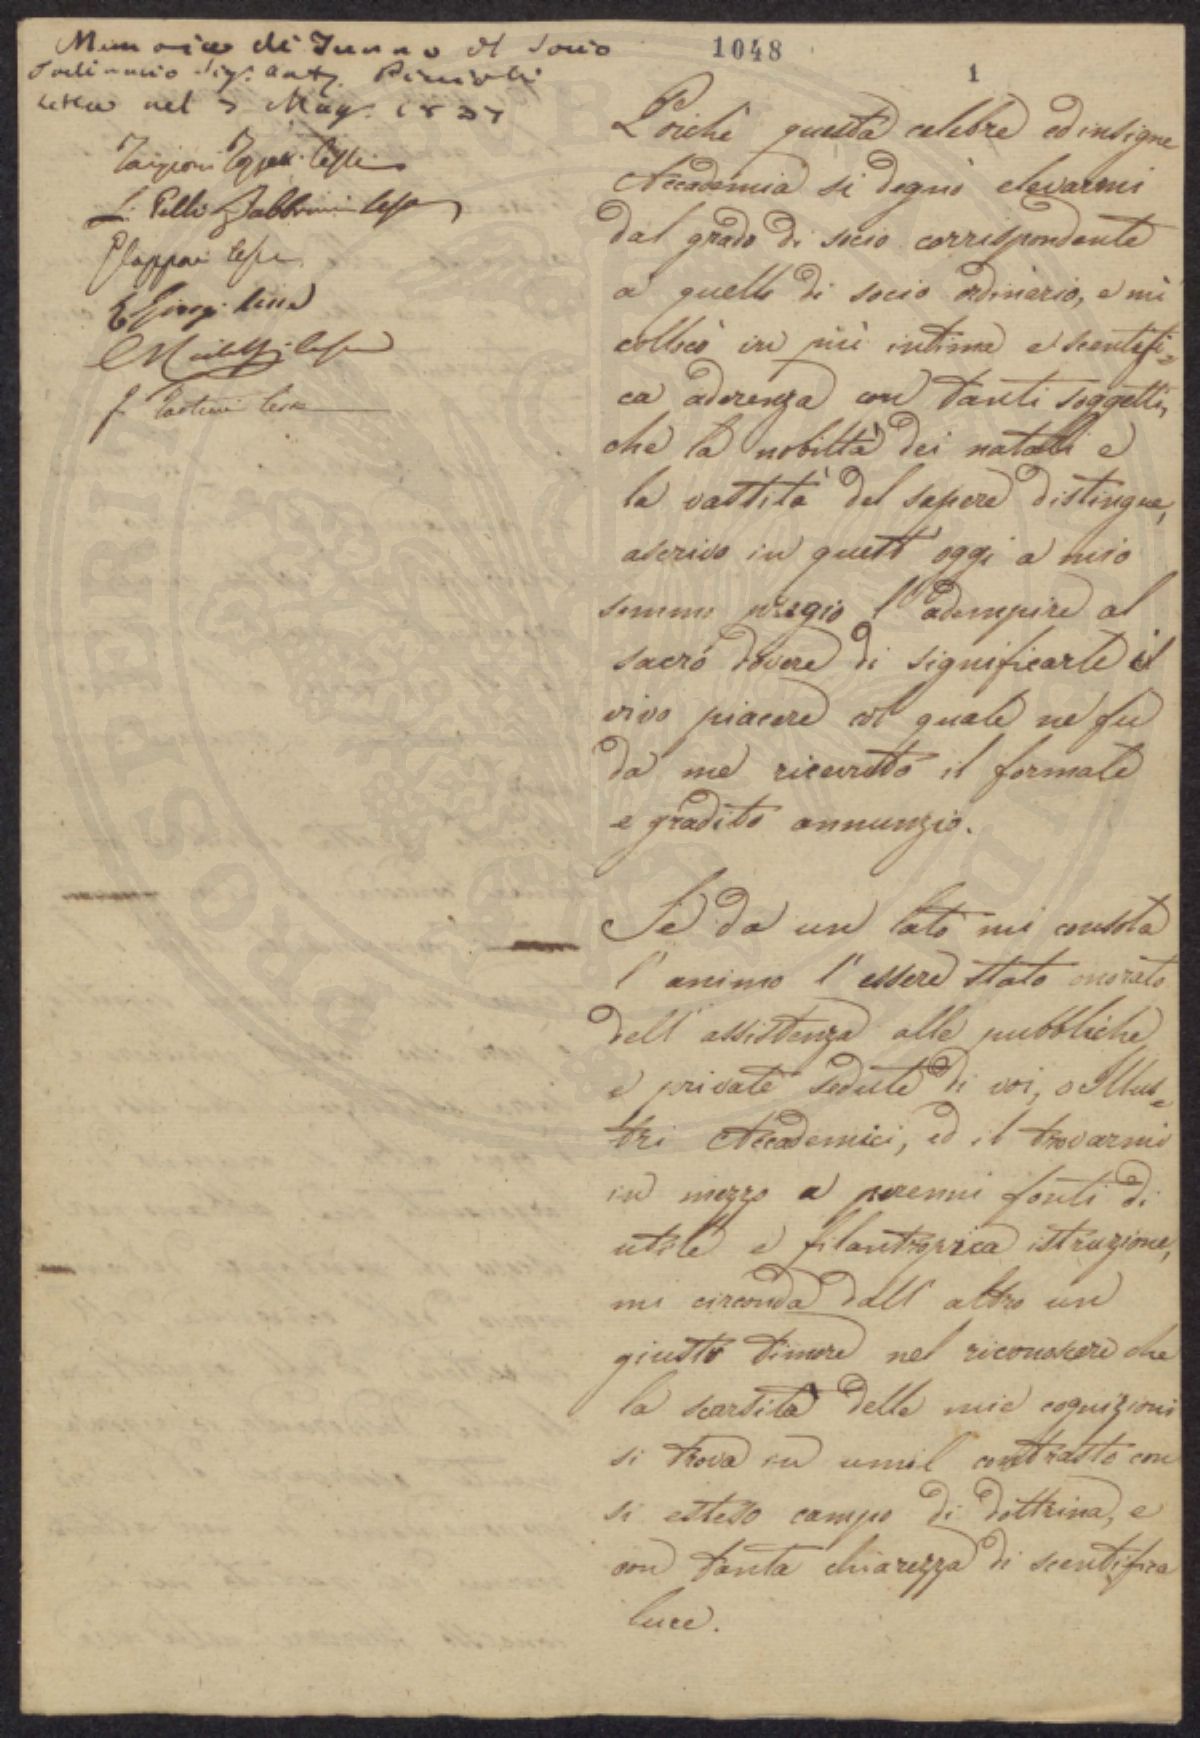 Memoria di Turno del Socio
Ordinario Sig. Ant.
letta nel 7 Mag. 1837
1048
1
Targioni Tozzetti
L. Pelli Fabbroni
Poichè questa celebre ed insigne
Accademia si degnò elevarmi
dal grado di socio corrispondente
a quello di socio ordinario, e mi
collocò in più intima e scentifi=
ca aderenza con tanti soggetti,
che la nobiltà dei natali e
la vastità del sapere distingue,
ascrivo in quest' oggi a mio
sommo pregio l' adempire al
sacro dovere di significarle il
vivo piacere col quale ne fu
da me ricevuto il formale
e gradito annunzio.
Se da un lato mi consola
l' animo l' essere stato onorato
dell' assistenza alle pubbliche
e private sedute di voi, o Illus=
tri Accademici, ed il trovarmi
in mezzo a perenni fonti di
utile e filantropica istruzione,
mi circonda dall' altro un
giusto timore nel riconoscere che
la scarsità delle mie cognizioni
si trova in umil contrasto con
si esteso campo di dottrina, e
con tanta chiarezza di scentifica
luce.